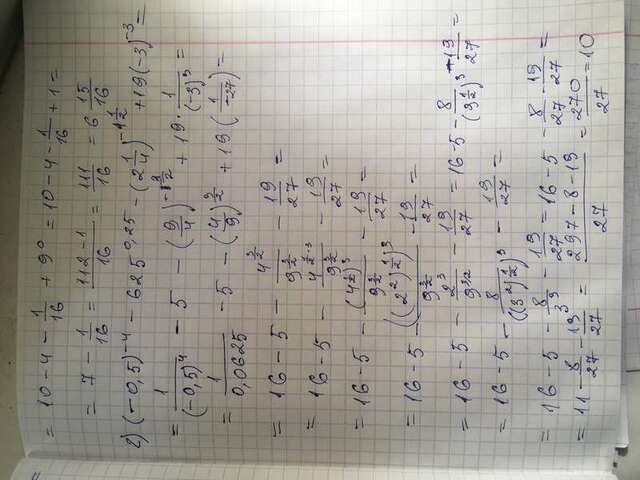 = 10 - 4 - 1/16 + 9⁰ = 10 - 4 - 1/16 + 1 =
= 7 - 1/16 = (112 - 1)/16 = 111/16 = 6 15/16
г) (-0,5)⁻⁴ - 625^0,25 - (2 1/4)^(-1 1/2) + 19(-3)⁻³ =
= 1/(-0,5)⁴ - 5 - (9/4)^(-3/2) + 19 · 1/(-3)³ =
= 1/0,0625 - 5 - (4/9)^(3/2) + 19 (1/-27) =
= 16 - 5 - 4^(3/2)/9^(3/2) - 19/27 =
= 16 - 5 - 4^(1/2 · 3)/9^(3/2) - 19/27 =
= 16 - 5 - (4^(1/2))³/9^(3/2) - 19/27 =
= 16 - 5 - ((2²)^(1/2))³/9^(3/2) - 19/27 =
= 16 - 5 - 2³/9^(3/2) - 19/27 = 16 - 5 - 8/(9^(1/2))³ - 19/27 =
= 16 - 5 - 8/((3²)^(1/2))³ - 19/27 =
= 16 - 5 - 8/3³ - 19/27 = 16 - 5 - 8/27 - 19/27 =
= 11 - 8/27 - 19/27 = (297 - 8 - 19)/27 = 270/27 = 10